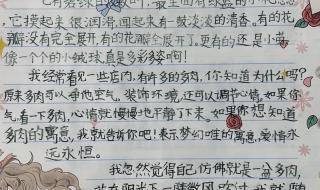 它摸起来很润滑,闻起来有一股淡淡的清香。有的花
瓣没有完全展开,有的花瓣全展开了。更有的还是小苞,
像一个个的小绒球真是多彩多姿啊!
我经常看见一些店内,有许多的多肉,你知道为什么吗?
原来多肉可以净化空气,装饰环境,还可以调节心情。如果你
气,看一下多肉,心情就慢慢地平静了下来。如果你想知道
多肉的寓意,我就告诉你吧!表示梦幻唯的寓意,爱情永
远永恒。
我忽然觉得自己仿佛就是一盆多肉,